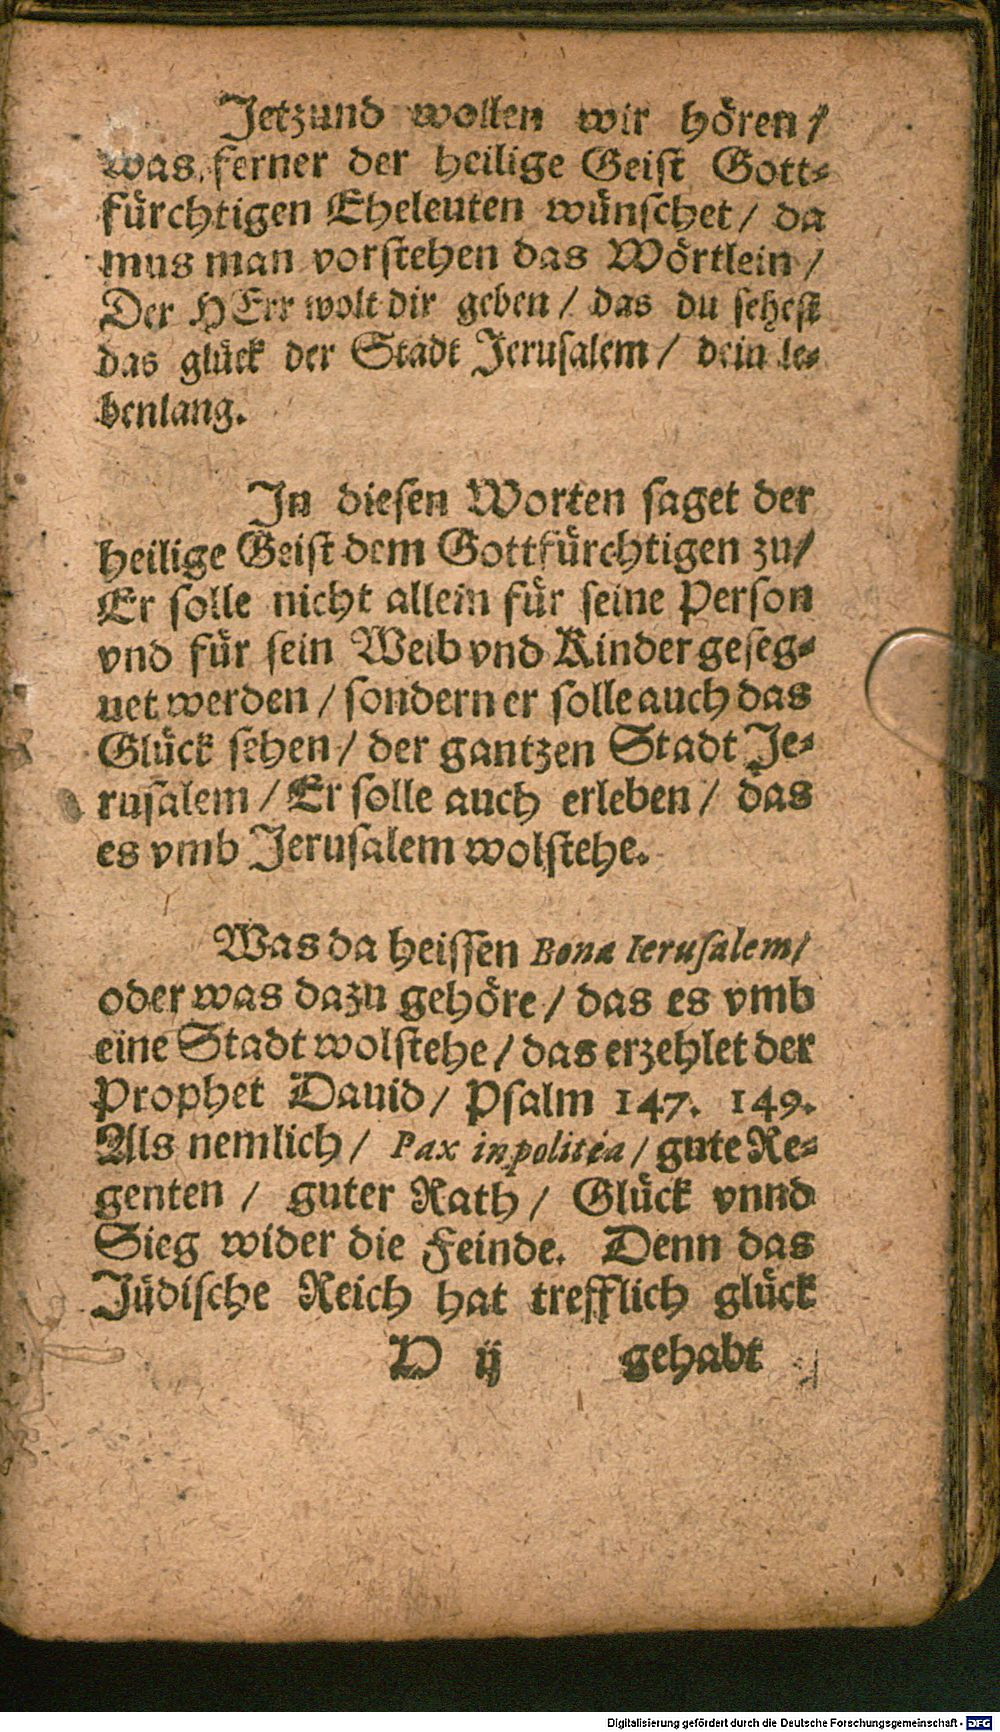 Jetzund wollen wir hören/
was ferner der heilige Geist Gott-
fürchtigen Eheleuten wünschet/ da
mus man vorstehen das Wörtlein/
Der HErr wolt dir geben/ das du sehest
das glück der Stadt Jerusalem/ dein le-
benlang.
In diesen Worten saget der
heilige Geist dem Gottfürchtigen zu/
Er solle nicht allein für seine Person
vnd für sein Weib vnd Kinder geseg-
net werden/ sondern er solle auch das
Glück sehen/ der gantzen Stadt Je-
rusalem/ Er solle auch erleben/ das
es vmb Jerusalem wolstehe.
Was da heissen Bona Ierusalem/
oder was dazu gehöre/ das es vmb
eine Stadt wolstehe/ das erzehlet der
Prophet Dauid/ Psalm 147. 149.
Als nemlich/ Pax in politéa/ gute Re-
genten/ guter Rath/ Glück vnnd
Sieg wider die Feinde. Denn das
Jüdische Reich hat trefflich glück
D ij gehabt
Digitalisierung gefördert durch die Deutsche Forschungsgemeinschaft - DFG